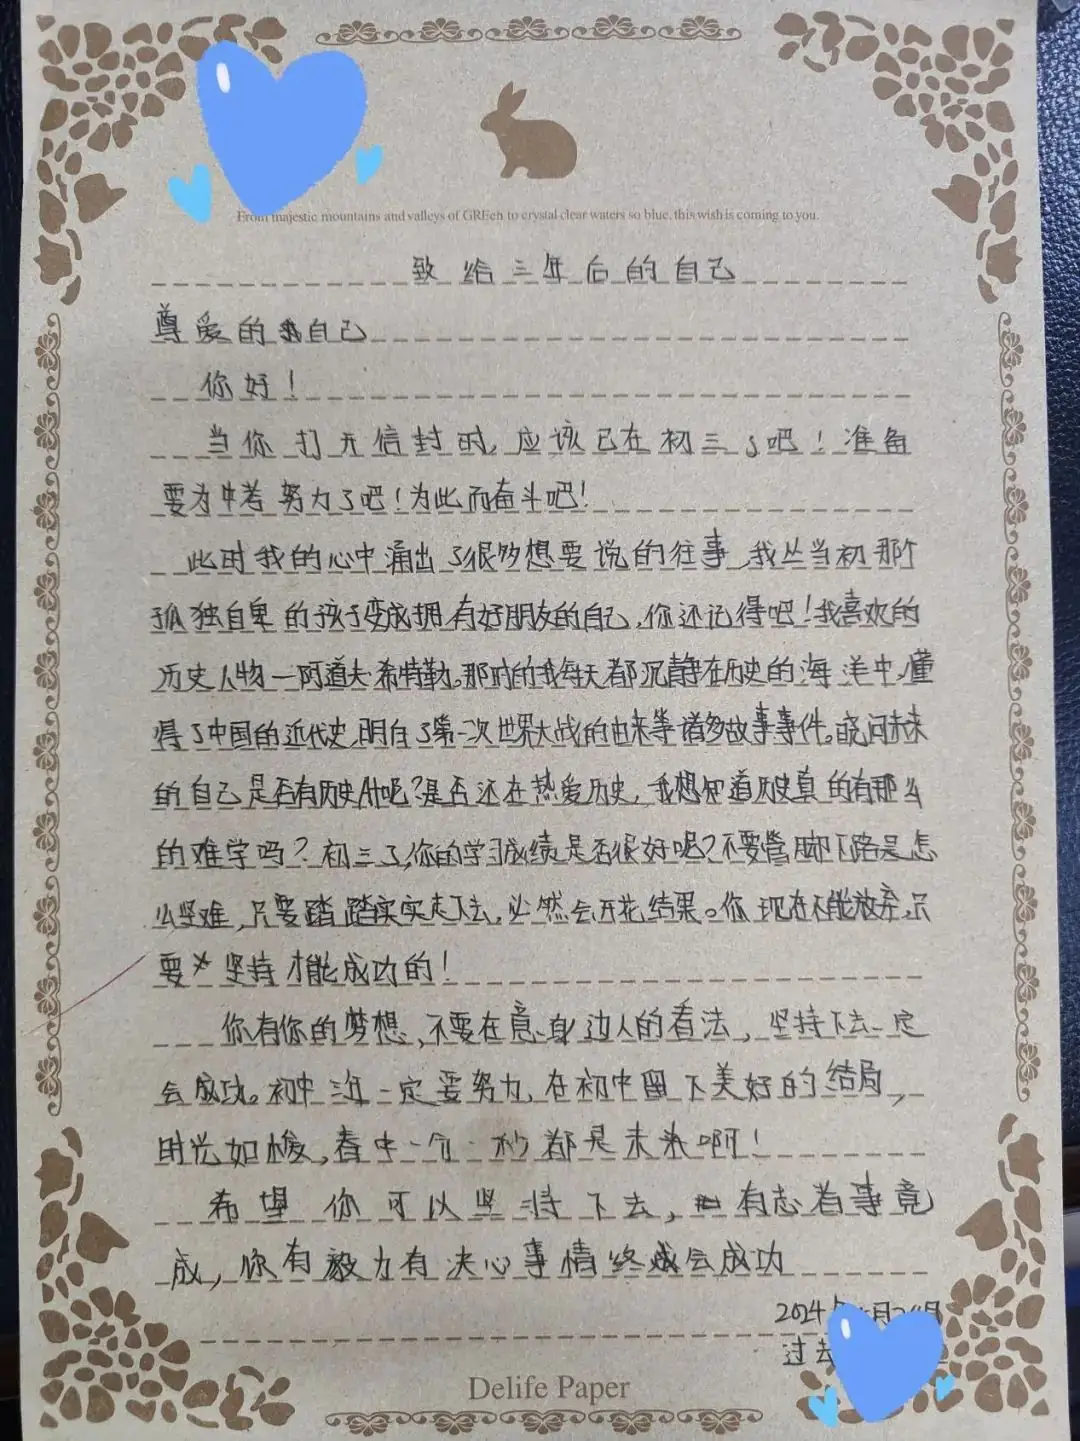 From majestic mountains and valleys of GREen to crystal clear waters so blue. this wish is coming to you.
致给三年后的自己
尊爱的我自己
你好！
当你打开信封时，应该已在初三了吧！准备
要为中考努力了吧！为此而奋斗吧！
此时我的心中涌出了很多想要说的往事，我从当初那个
孤独自卑的孩子变成拥有好朋友的自己，你还记得吧！我喜欢的
历史人物—阿道夫·希特勒。那时的我每天都沉静在历史的海洋中，懂
得了中国的近代史，明白了第一次世界大战的由来等诸多故事事件。
的自己是否有历史 呢？是否还在热爱历史，我想知道历史真的有那么
的难学吗？初三了，你的学习成绩是否很好呢？不要管脚下路是怎
么坚难，只要踏踏实实走下去，必然会开花结果。你现在不能放弃，只
要 坚持才能成功的！
你有你的梦想，不要在意身边人的看法，坚持下去一定
会成功。初中三年一定要努力，在初中留下美好的结局，
时光如梭，春中一个一秒都是未来啊！
希望你可以坚持下去，有志者事竟
成，你有毅力有决心事情终会成功
2024年 月2 日
过去
Delife Paper